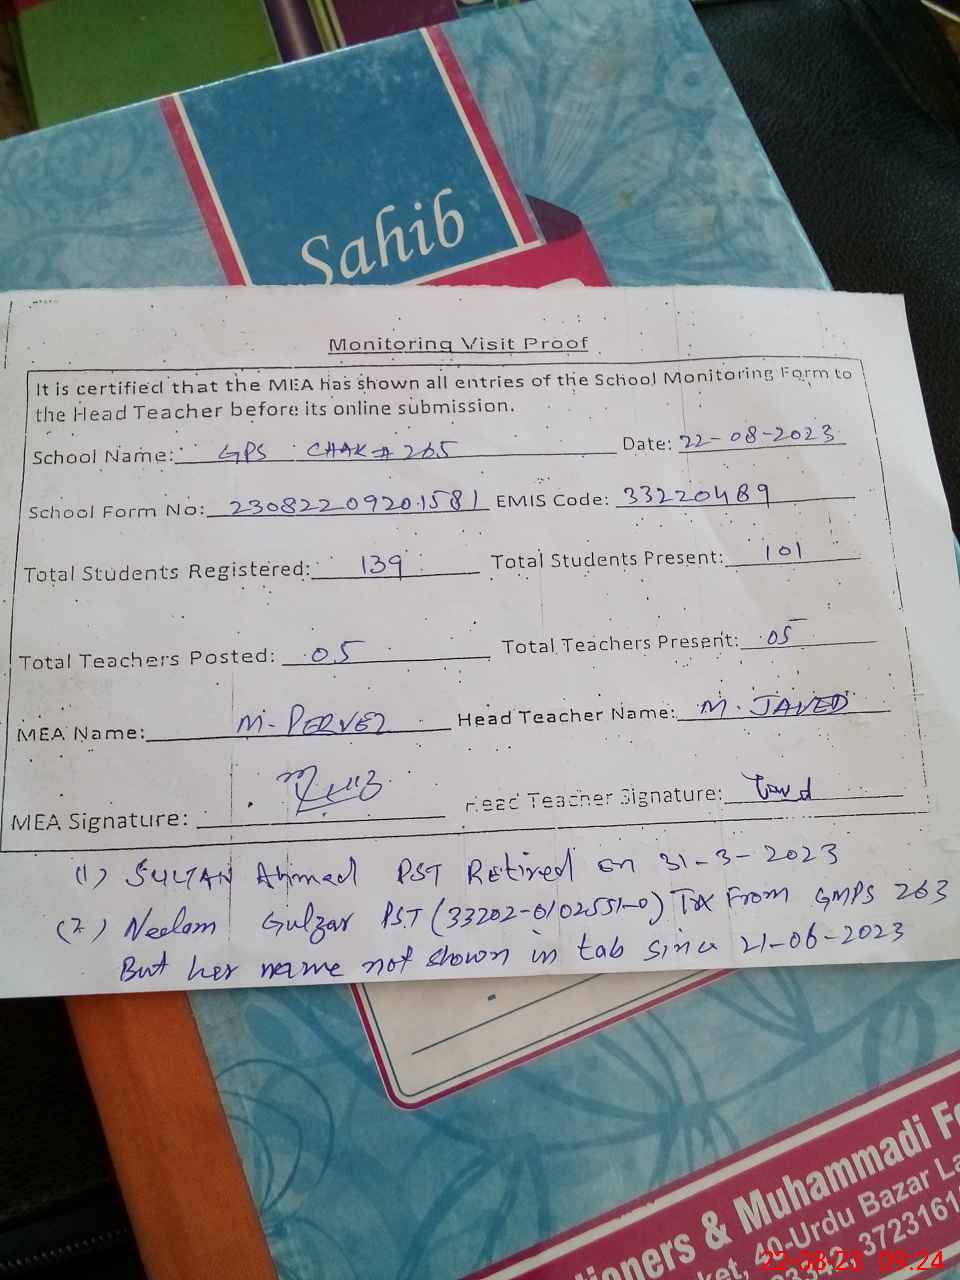 Sahib
Monitoring Visit Proof
It is certified that the MEA has shown all entries of the School Monitoring Form to
the Head Teacher before its online submission.
School Name: GPS CHAK # 265 Date: 22-08-2023
School Form No: 23082209201581 EMIS Code: 33220489
Total Students Registered: 139 Total Students Present: 101
Total Teachers Posted: 05 Total Teachers Present: 05
MEA Name: M. PERVEZ Head Teacher Name: M. JAVED
MEA Signature: Head Teacher Signature:
(1) SULTAN Ahmad PST Retired on 31-3-2023
(2) Neelam Gulzar PST (33202-0102551-0) From GMPS 263
But her name not shown in tab since 21-06-2023
tioners & Muhammadi F
ket, 40-Urdu Bazar La
3723161
22-08-23 09:24